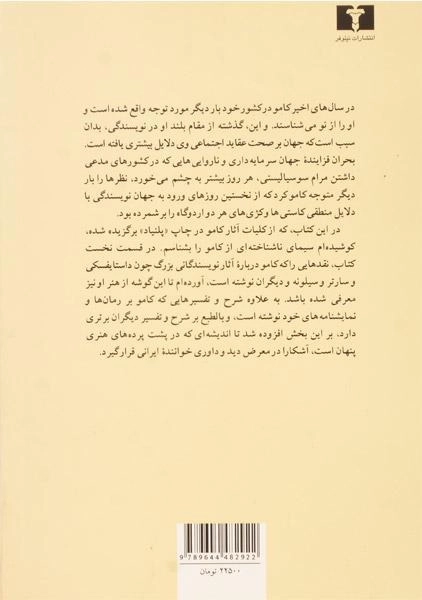 انتشارات نیلوفر
در سال‌های اخیر کامو در کشور خود بار دیگر مورد توجه واقع شده است و
او را از نو می‌شناسند. و این، گذشته از مقام بلند او در نویسندگی، بدان
سبب است که جهان بر صحت عقاید اجتماعی وی دلایل بیشتری یافته است.
بحران فزایندهٔ جهان سرمایه‌داری و ناروایی‌هایی که در کشورهای مدعی
داشتن مرام سوسیالیستی، هر روز بیشتر به چشم می‌خورد، نظرها را بار
دیگر متوجه کامو کرد که از نخستین روزهای ورود به جهان نویسندگی با
دلایل منطقی کاستی‌ها و کژی‌های هر دو اردوگاه را بر شمرده بود.
در این کتاب، که از کلیات آثار کامو در چاپ «پلئیاد» برگزیده شده،
کوشیده‌ام سیمای ناشناخته‌ای از کامو را بشناسم. در قسمت نخست
کتاب، نقدهایی را که کامو دربارهٔ آثار نویسندگانی بزرگ چون داستایفسکی
و سارتر و سیلونه و دیگران نوشته است، آورده‌ام تا این گوشه از هنر او نیز
معرفی شده باشد. به علاوه شرح و تفسیرهایی که کامو بر رمان‌ها و
نمایشنامه‌های خود نوشته است، و بالطبع بر شرح و تفسیر دیگران برتری
دارد، بر این بخش افزوده شد تا اندیشه‌ای که در پشت پرده‌های هنری
پنهان است، آشکارا در معرض دید و داوری خوانندهٔ ایرانی قرار گیرد.
9 789644 482922
۲۲۵۰۰ تومان